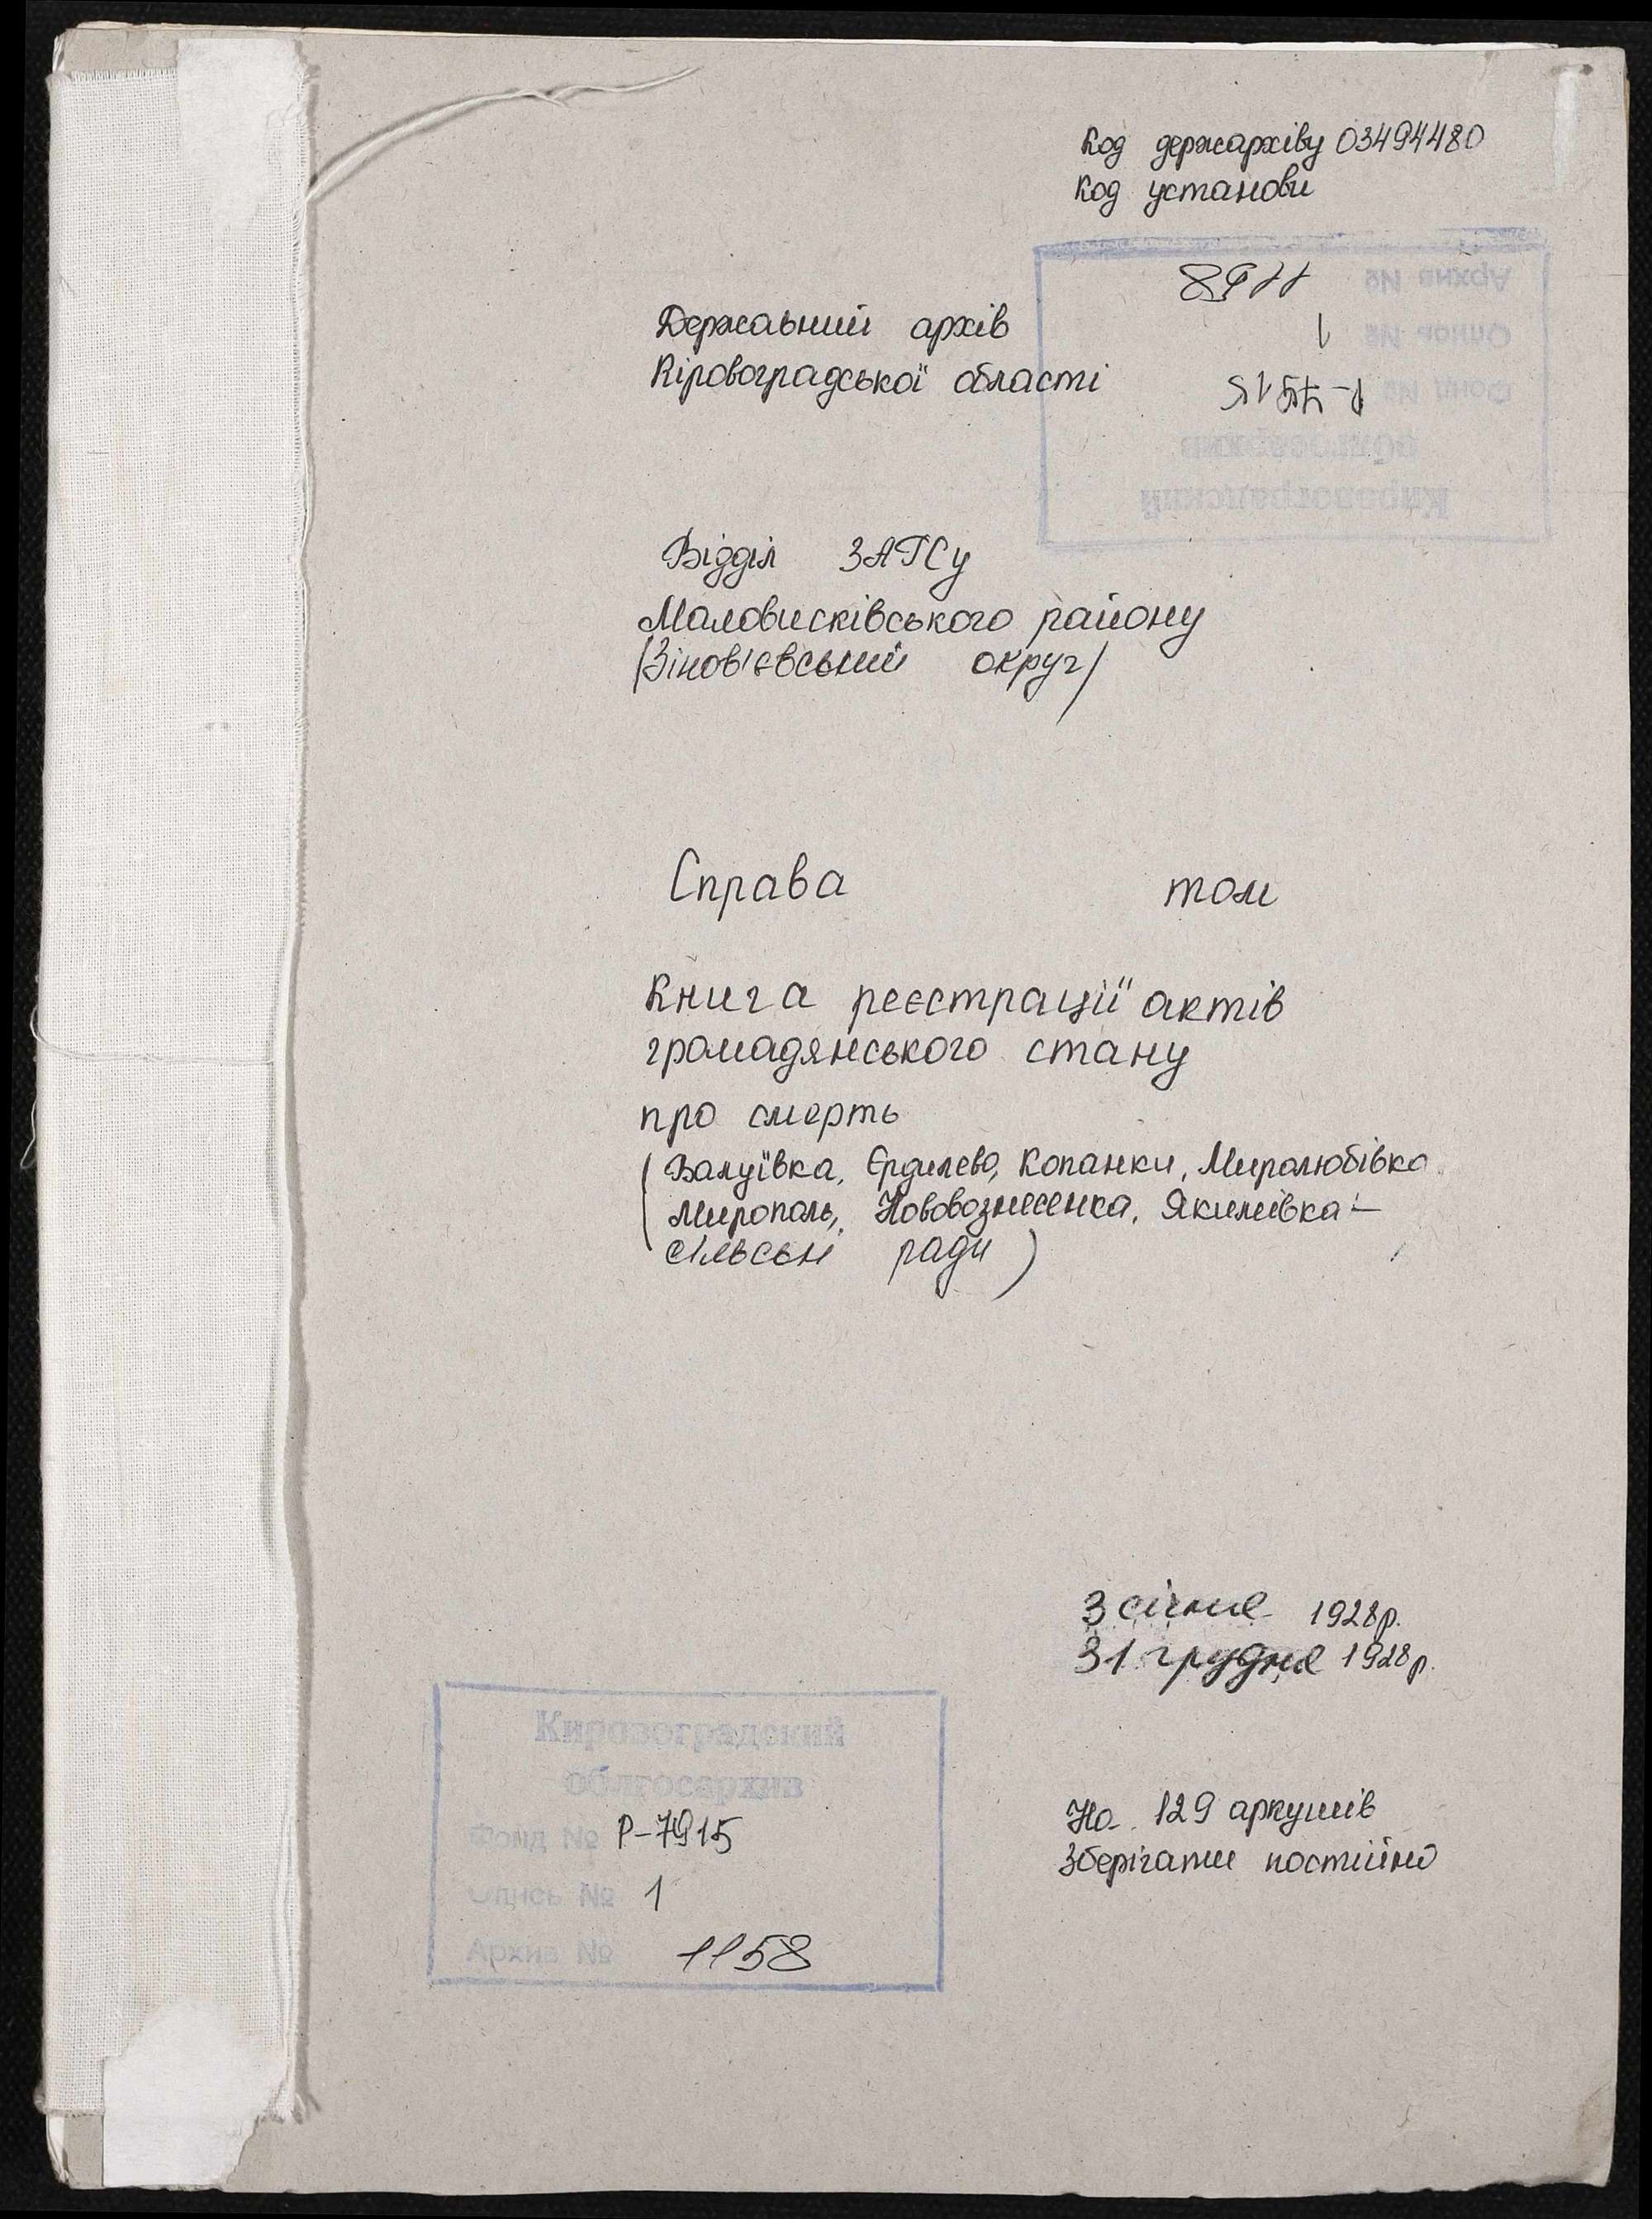 Код держархіву 03494480
Код установи
Архив № 1158
Опись № 1
Фонд № Р-7915
облгосархив
Кировоградский
Державний архів
Кіровоградської області
Відділ ЗАГСу
Маловисківського району
/Зінов'євський округ/
Справа том
Книга реєстрації актів
громадянського стану
про смерть
(Валуївка, Єрделево, Копанки, Миролюбівка
Мирополь, Нововознесенка, Якимівка -
сільські ради)
3 січня 1928р.
31 грудня 1928р.
Кировоградский
облгосархив
Фонд № Р-7915
Опись № 1
Архив № 1158
На 129 аркушів
Зберігати постійно